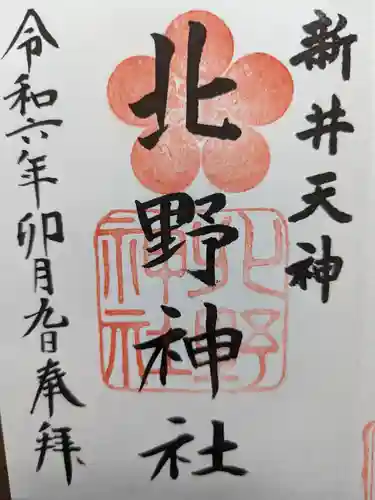 新井天神
北野神社
令和六年卯月九日奉拝
北野神社